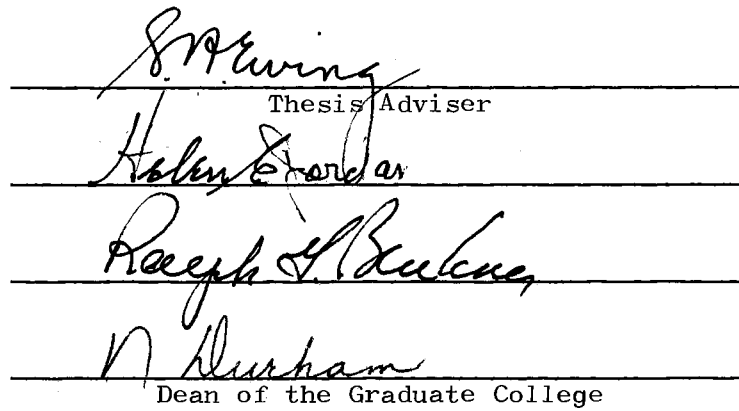 S. A. Ewing
Thesis Adviser
Helen Jordan
Ralph G. Buckner
N Durham
Dean of the Graduate College